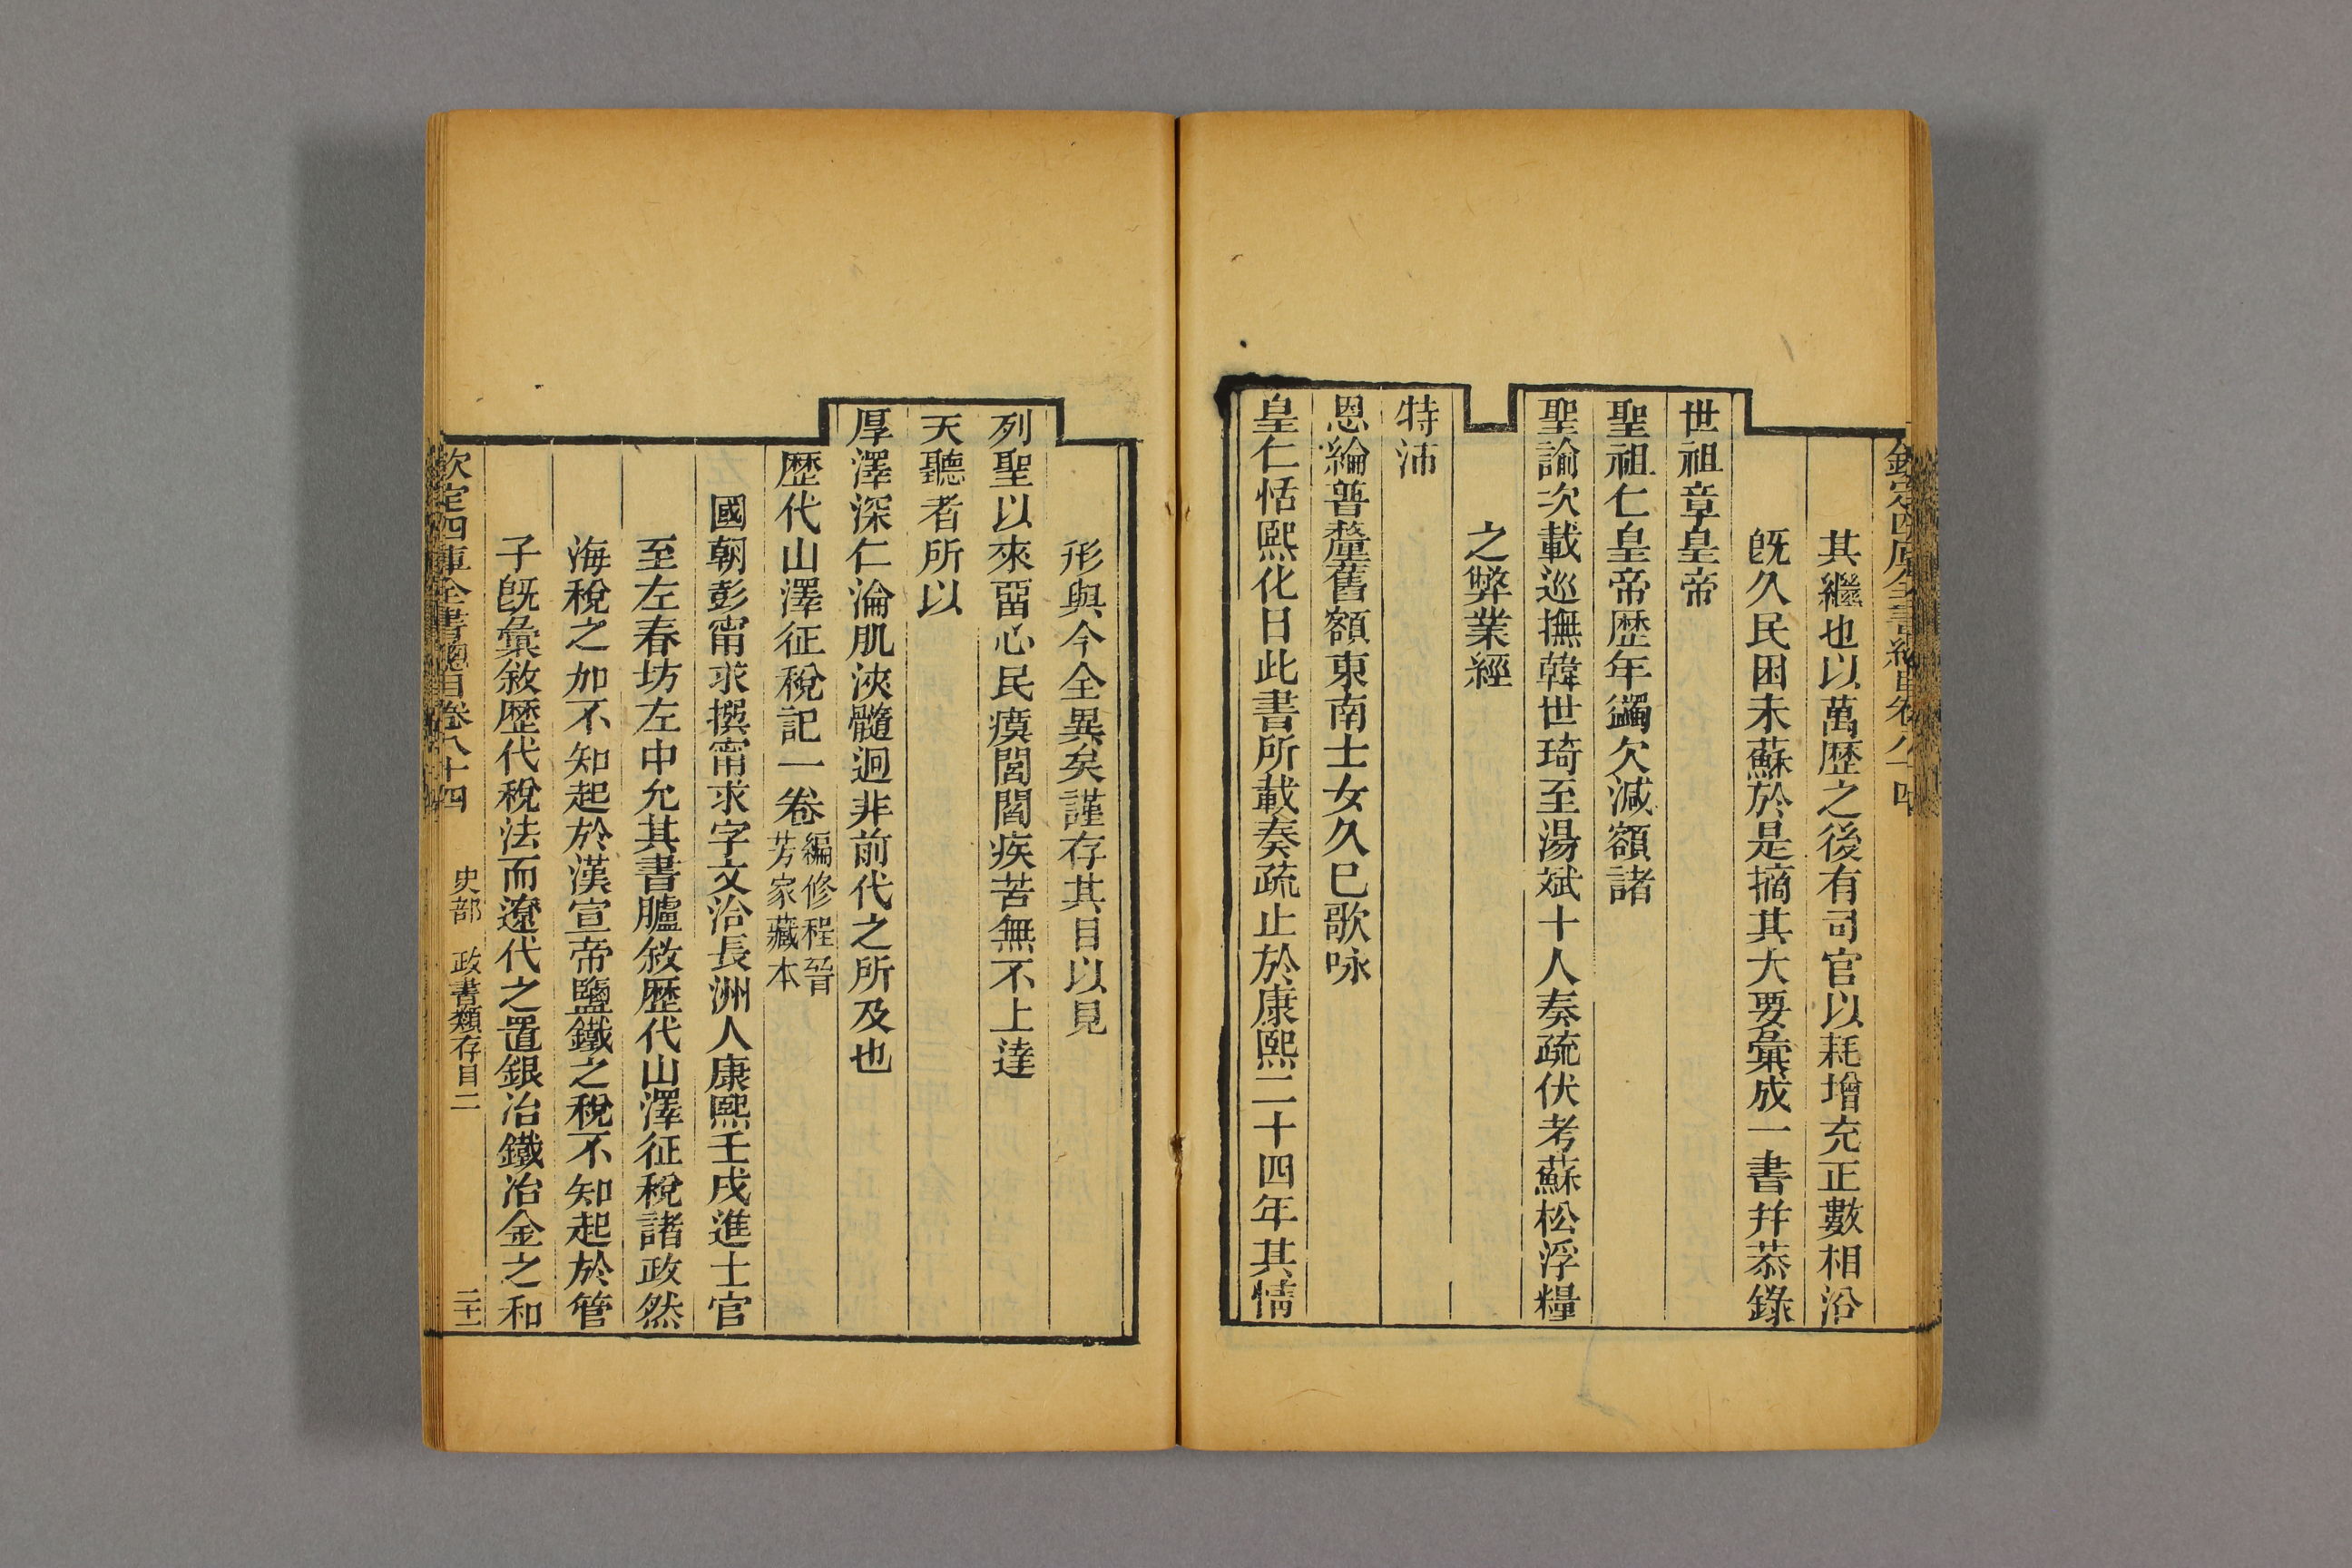 其繼也以萬歷之後有司官以耗增充正數相沿
旣久民困未蘇於是摘其大要彙成一書幷恭錄
世祖章皇帝
聖祖仁皇帝歷年蠲欠減額諸
聖諭次載巡撫韓世琦至湯斌十人奏疏伏考蘇松浮糧
之弊業經
特沛
恩綸普釐舊額東南士女久已歌咏
皇仁恬熙化日此書所載奏疏止於康熙二十四年其情
形與今全異矣謹存其目以見
列聖以來畱心民瘼閭閻疾苦無不上達
天聽者所以
厚澤深仁淪肌浹髓迥非前代之所及也
歷代山澤征稅記一卷編修程晉
芳家藏本
國朝彭甯求撰甯求字文洽長洲人康熙壬戌進士官
至左春坊左中允其書臚敘歷代山澤征稅諸政然
海稅之加不知起於漢宣帝鹽鐵之稅不知起於管
子旣彙敘歷代稅法而遼代之置銀冶鐵冶金之和
欽定四庫全書總目卷八十四 史部 政書類存目二 二十一